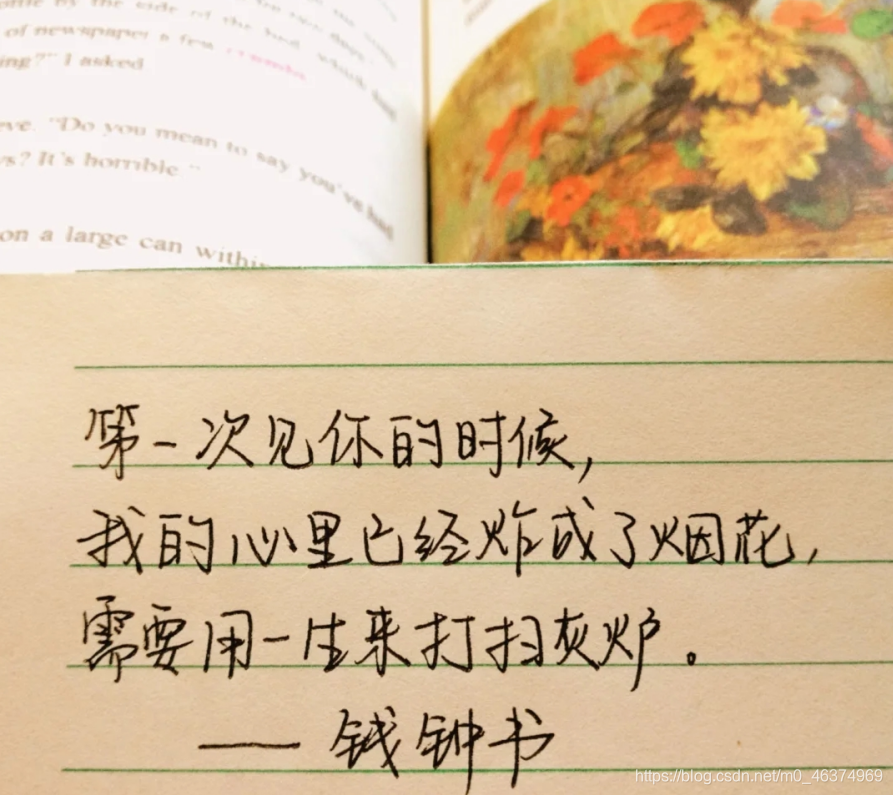 ome by the side of the bed, which
of newspaper a few
ing?" I asked
eve. "Do you mean to say you've had
ys? It's horrible."
on a large can within
第一次见你的时候,
我的心里已经炸成了烟花,
需要用一生来打扫灰炉。
—— 钱钟书
https://blog.csdn.net/m0_46374969